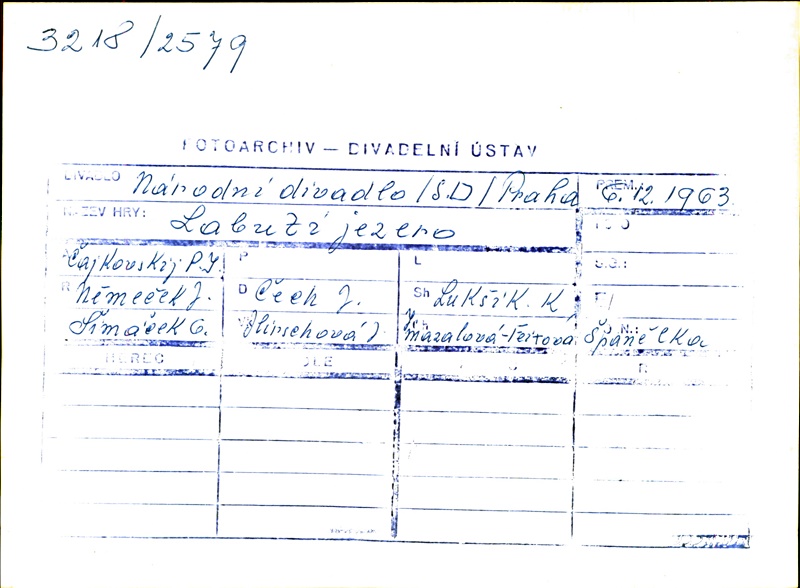 3218/2579
FOTOARCHIV — DIVADELNÍ ÚSTAV
DIVADLO Národní divadlo /SD/ Praha PREM.: 6.12.1963
NÁZEV HRY: Labutí jezero
Čajkovskij P.I. P L S.G.:
R Němeček J. D Čech J. Sh Lukšík K. F/
Šimáček O. Jhirschová J. Mazalová-Fořtová Španělka
HEREC R